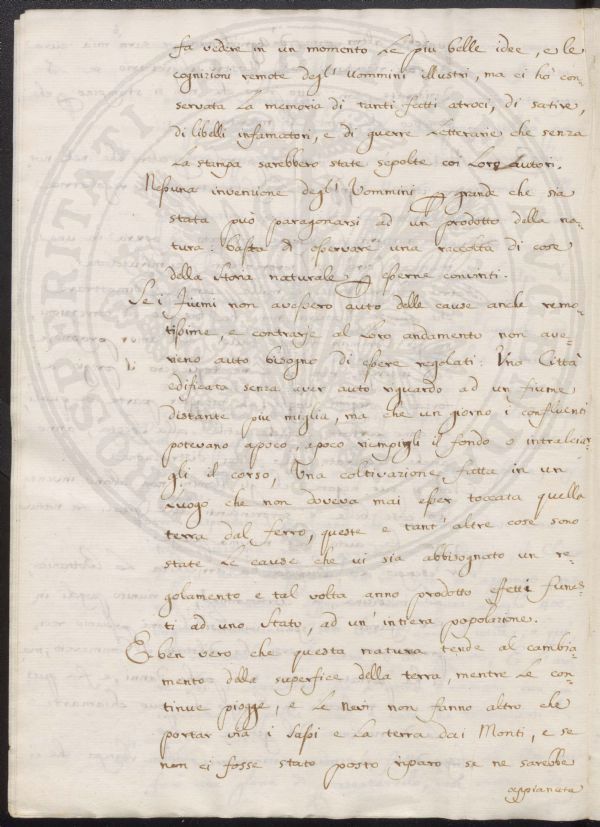 fa vedere in un momento le più belle idee, e le
cognizioni remote degl' Uommini illustri, ma ci hò con-
servata la memoria di tanti fatti atroci, di satire,
di libelli infamatori, e di guerre letterarie che senza
la stampa sarebbero state sepolte coi loro autori.
Nessuna invenzione degl' Uommini grande che sia
stata può paragonarsi ad un prodotto della na-
tura: basta di osservare una raccolta di cose
della storia naturale esserne convinti.
Se i fiumi non avessero auto delle cause anche remo-
tissime, e contrarie al loro andamento non ave-
rieno auto bisogno di essere regolati: Una Città
edificata senza aver auto riguardo ad un fiume
distante più miglia, ma che un giorno i confluenti
potevano apoco, apoco riempirgli il fondo o intralciar-
gli il corso, Una coltivazione fatta in un
luogo che non doveva mai esser toccata quella
terra dal ferro, queste e tant' altre cose sono
state le cause che vi sia abbisognato un re-
golamento e tal volta anno prodotto effetti funes-
ti ad uno stato, ad un' intiera popolazione.
E ben vero che questa natura tende al cambia-
mento della superfice della terra, mentre le con-
tinue piogge, e le nevi non fanno altro che
portar via i sassi e la terra dai Monti, e se
non ci fosse stato posto riparo se ne sarebbe
appianata